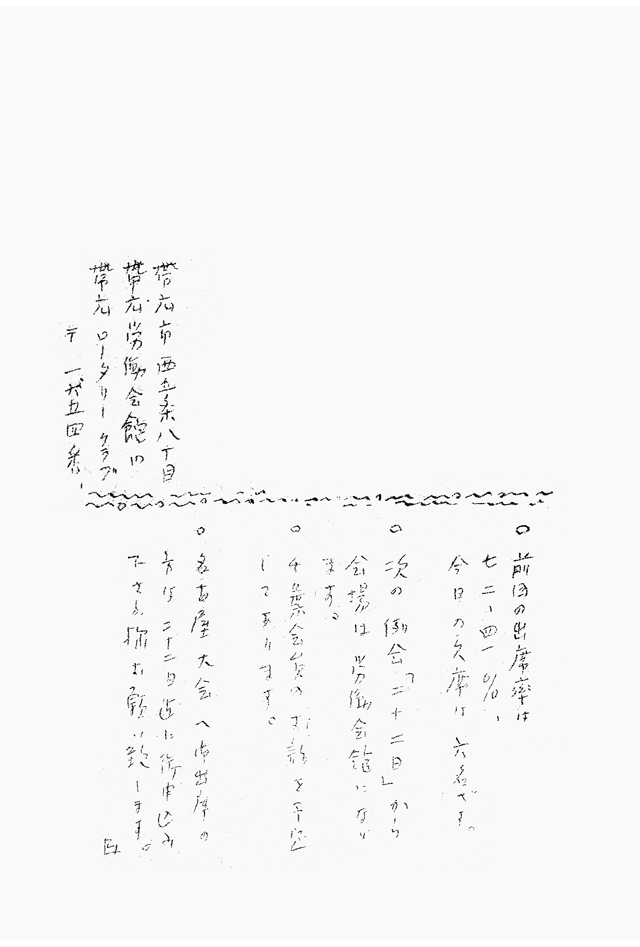 ○ 前回の出席率は
七二、四一%、
今日の欠席は六名です。
○ 次の例会「二十二日」から
会場は労働会館になり
ます。
○ 千葉会員のお話を予定
してあります。
○ 名古屋大会へ御出席の
方は二十二日迄に御申込み
下さる様お願い致します。
帯広市西五条八丁目
帯広労働会館内
帯広ロータリークラブ
テ 一六五四番